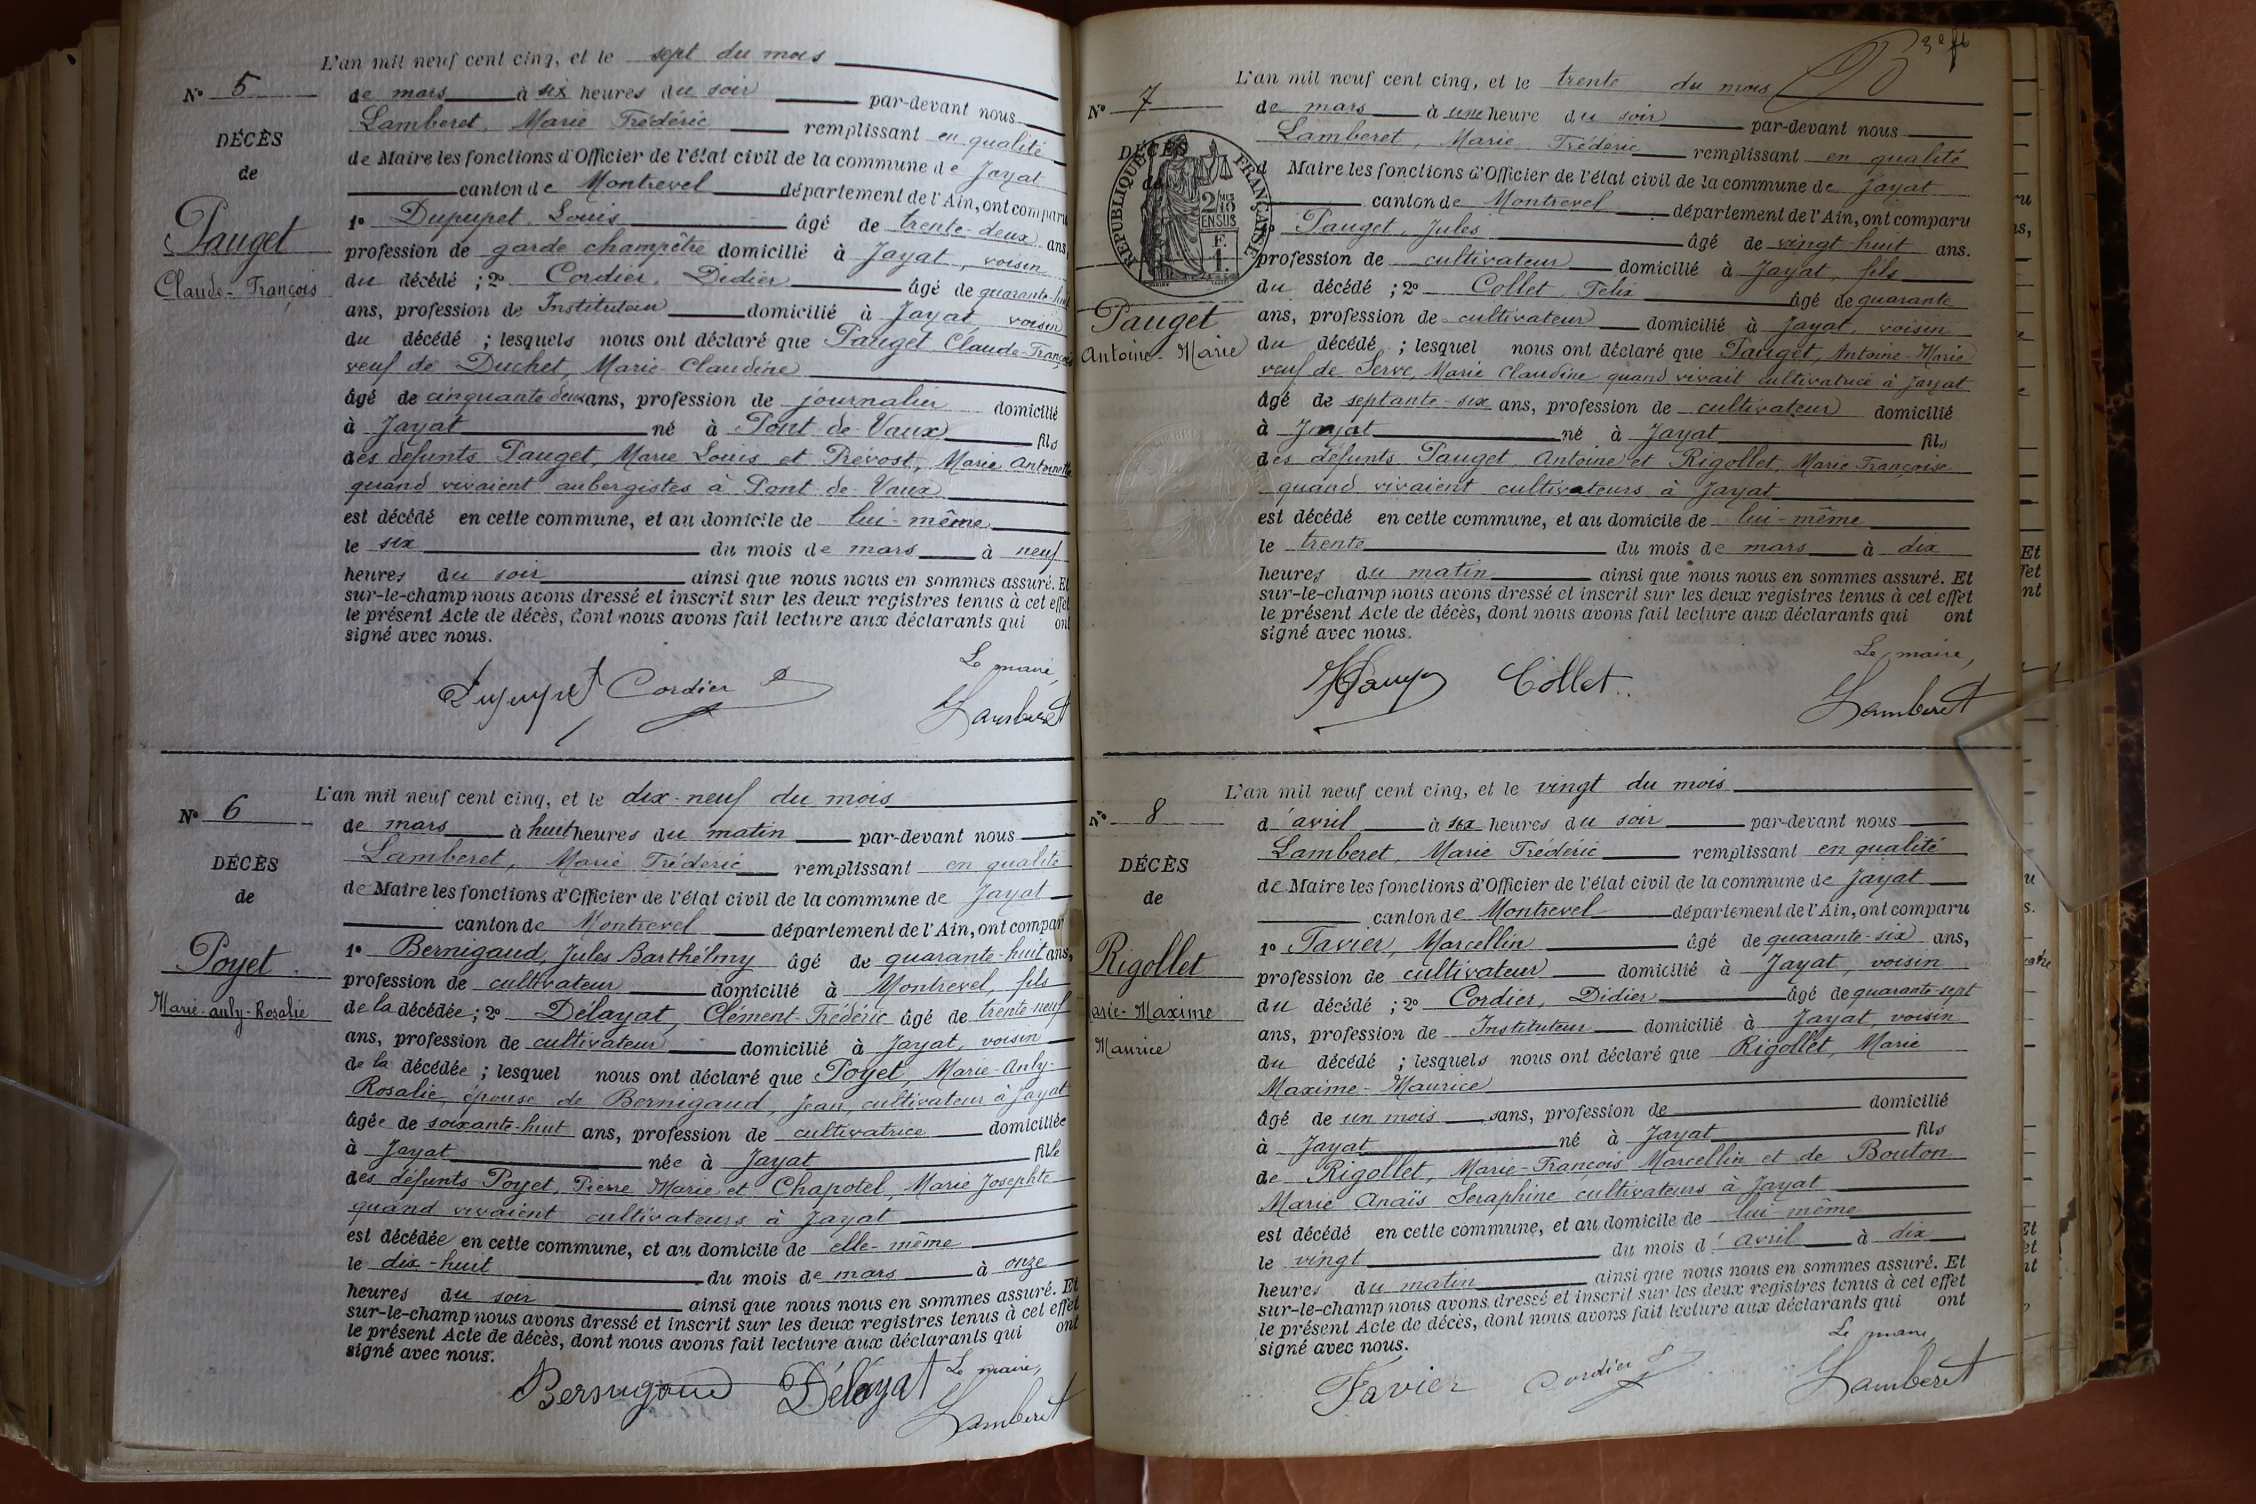 L'an mil neuf cent cinq, et le sept du mois
N° 5
de mars à six heures du soir par-devant nous
Lamberet, Marie Frédéric remplissant en qualité
DÉCÈS
de
de Maire les fonctions d'Officier de l'état civil de la commune de Jayat
canton de Montrevel département de l'Ain, ont comparu
Pauget
Claude-François
1° Dupupet Louis âgé de trente-deux ans,
profession de garde champêtre domicilié à Jayat, voisin
du décédé ; 2° Cordier, Didier âgé de quarante-huit
ans, profession de Instituteur domicilié à Jayat, voisin
du décédé ; lesquels nous ont déclaré que Pauget, Claude-François
veuf de Duchet, Marie-Claudine
âgé de cinquante deux ans, profession de journalier domicilié
à Jayat né à Pont-de-Vaux fils
des défunts Pauget, Marie Louis et Prévost, Marie Antoinette
quand vivaient aubergistes à Pont-de-Vaux
est décédé en cette commune, et au domicile de lui-même
le six du mois de mars à neuf
heures du soir ainsi que nous nous en sommes assuré. Et
sur-le-champ nous avons dressé et inscrit sur les deux registres tenus à cet effet
le présent Acte de décès, dont nous avons fait lecture aux déclarants qui ont
signé avec nous.
Le maire,
Dupupet Cordier D
Lamberet
L'an mil neuf cent cinq, et le dix-neuf du mois
N° 6
de mars à huit heures du matin par-devant nous
Lamberet, Marie Frédéric remplissant en qualité
DÉCÈS
de
de Maire les fonctions d'Officier de l'état civil de la commune de Jayat
canton de Montrevel département de l'Ain, ont compar
Poyet
Marie-Auly-Rosalie
1° Bernigaud, Jules Barthélmy âgé de quarante-huit ans,
profession de cultivateur domicilié à Montrevel, fils
de la décédée ; 2° Délayat, Clément-Frédéric âgé de trente-neuf
ans, profession de cultivateur domicilié à Jayat, voisin
de la décédée ; lesquel nous ont déclaré que Poyet, Marie-Auly-
Rosalie, épouse de Bernigaud, Jean, cultivateur à Jayat
âgée de soixante-huit ans, profession de cultivatrice domiciliée
à Jayat née à Jayat fille
des défunts Poyet, Pierre Marie et Chapotel, Marie Josephte
quand vivaient cultivateurs à Jayat
est décédée en cette commune, et au domicile de elle-même
le dix-huit du mois de mars à onze
heures du soir ainsi que nous nous en sommes assuré. Et
sur-le-champ nous avons dressé et inscrit sur les deux registres tenus à cet effet
le présent Acte de décès, dont nous avons fait lecture aux déclarants qui ont
signé avec nous.
Le maire,
Bernigaud Délayat
Lamberet
L'an mil neuf cent cinq, et le trente du mois
N° 7
de mars à une heure du soir par-devant nous
Lamberet, Marie Frédéric remplissant en qualité
DÉCÈS
de
RÉPUBLIQUE FRANÇAISE
2/10 EN SUS
F. 1.
d Maire les fonctions d'Officier de l'état civil de la commune de Jayat
canton de Montrevel département de l'Ain, ont comparu
Pauget
Antoine-Marie
Pauget, Jules âgé de vingt-huit ans.
profession de cultivateur domicilié à Jayat, fils
du décédé ; 2° Collet, Félix âgé de quarante
ans, profession de cultivateur domicilié à Jayat, voisin
du décédé ; lesquel nous ont déclaré que Pauget, Antoine-Marie
veuf de Serve, Marie Claudine quand vivait cultivatrice à Jayat
âgé de septante-six ans, profession de cultivateur domicilié
à Jayat né à Jayat fils
des défunts Pauget, Antoine et Rigollet, Marie Françoise
quand vivaient cultivateurs à Jayat
est décédé en cette commune, et au domicile de lui-même
le trente du mois de mars à dix
heures du matin ainsi que nous nous en sommes assuré. Et
sur-le-champ nous avons dressé et inscrit sur les deux registres tenus à cet effet
le présent Acte de décès, dont nous avons fait lecture aux déclarants qui ont
signé avec nous.
Le maire,
Collet
Lamberet
L'an mil neuf cent cinq, et le vingt du mois
N° 8
d'avril à six heures du soir par-devant nous
Lamberet, Marie Frédéric remplissant en qualité
DÉCÈS
de
de Maire les fonctions d'Officier de l'état civil de la commune de Jayat
canton de Montrevel département de l'Ain, ont comparu
Rigollet
arie-Maxime
Maurice
1° Favier, Marcellin âgé de quarante-six ans,
profession de cultivateur domicilié à Jayat, voisin
du décédé ; 2° Cordier, Didier âgé de quarante-sept
ans, profession de Instituteur domicilié à Jayat, voisin
du décédé ; lesquels nous ont déclaré que Rigollet, Marie
Maxime-Maurice
âgé de un mois ans, profession de domicilié
à Jayat né à Jayat fils
de Rigollet, Marie-François Marcellin et de Bouton
Marie Anaïs Seraphine cultivateurs à Jayat
est décédé en cette commune, et au domicile de lui-même
le vingt du mois d'avril à dix
heures du matin ainsi que nous nous en sommes assuré. Et
sur-le-champ nous avons dressé et inscrit sur les deux registres tenus à cet effet
le présent Acte de décès, dont nous avons fait lecture aux déclarants qui ont
signé avec nous.
Le maire,
Favier Cordier D
Lamberet